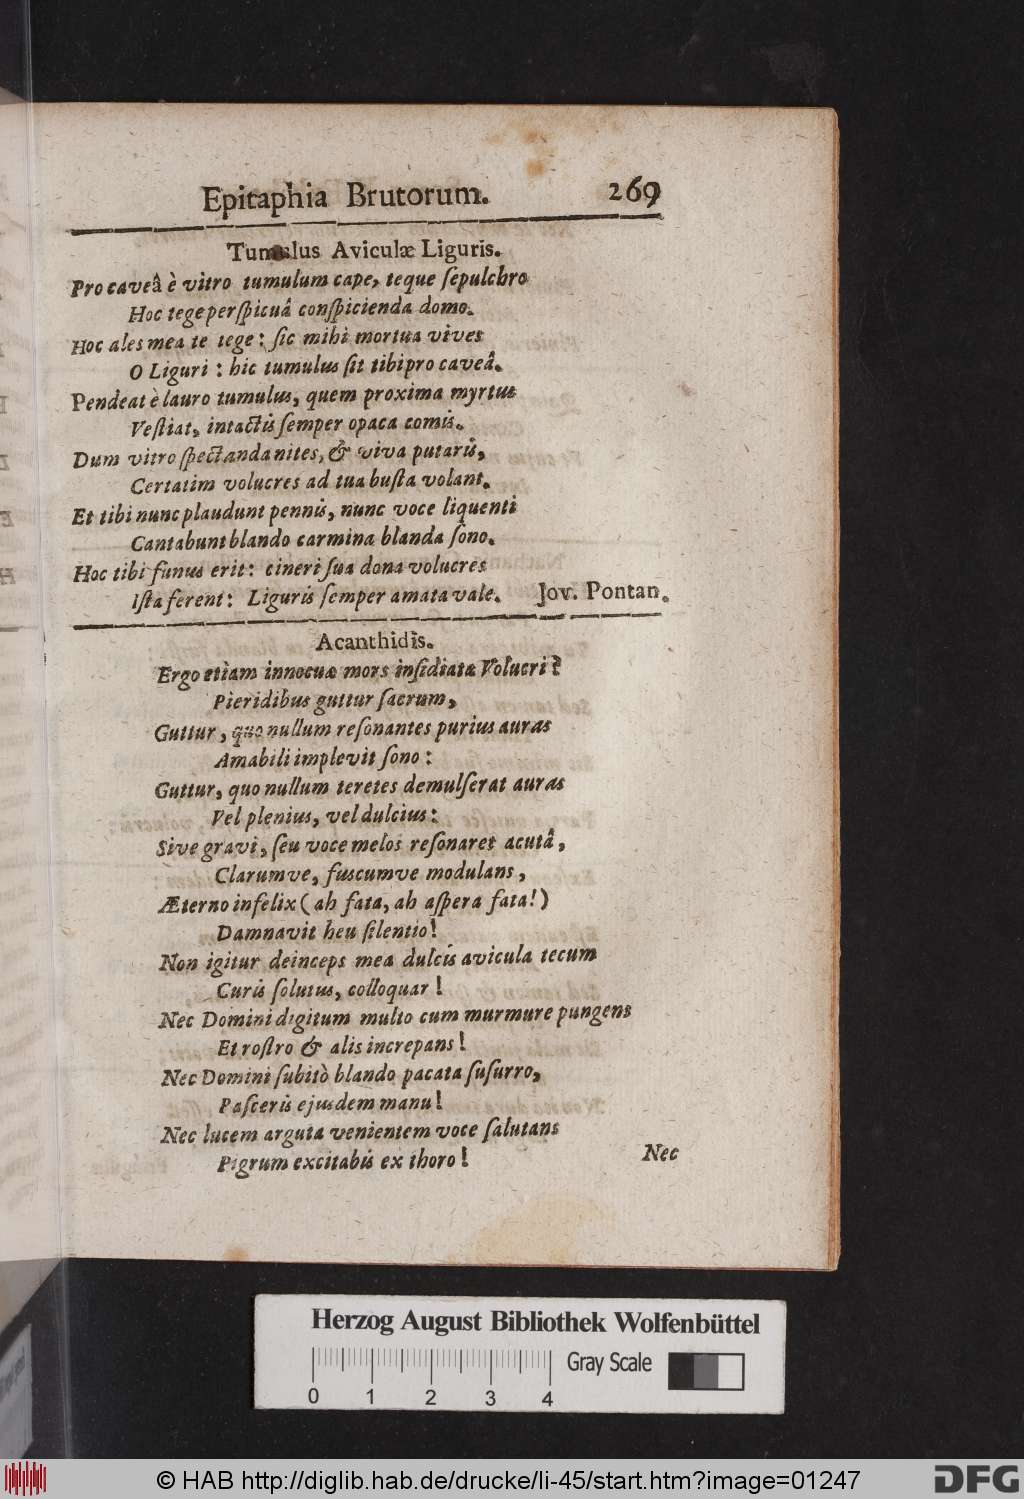 Epitaphia Brutorum. 269
Tumulus Aviculæ Liguris.
Pro caveâ è vitro tumulum cape, teque ſepulchro
Hoc tege perſpicuâ conſpicienda domo.
Hoc ales mea te tege: ſic mihi mortua vives
O Liguri: hic tumulus ſit tibi pro caveâ.
Pendeat è lauro tumulus, quem proxima myrtus
Veſtiat, intactis ſemper opaca comis.
Dum vitro ſpectanda nites, & viva putaris,
Certatim volucres ad tua buſta volant.
Et tibi nunc plaudunt pennis, nunc voce liquenti
Cantabunt blando carmina blanda ſono.
Hoc tibi funus erit: cineri ſua dona volucres
Iſta ferent: Liguris ſemper amata vale. Jov. Pontan.
Acanthidis.
Ergo etiam innocuæ mors inſidiata Volucri?
Pieridibus guttur ſacrum,
Guttur, quo nullum reſonantes purius auras
Amabili implevit ſono:
Guttur, quo nullum teretes demulſerat auras
Vel plenius, vel dulcius:
Sive gravi, ſeu voce melos reſonaret acutâ,
Clarumve, fuscumve modulans,
Æterno infelix (ah fata, ah aſpera fata!)
Damnavit heu ſilentio!
Non igitur deinceps mea dulcis avicula tecum
Curis ſolutus, colloquar!
Nec Domini digitum multo cum murmure pungens
Et roſtro & alis increpans!
Nec Domini ſubitò blando pacata ſuſurro,
Paſceris ejusdem manu!
Nec lucem arguta venientem voce ſalutans
Pigrum excitabis ex thoro!
Nec
Herzog August Bibliothek Wolfenbüttel
Gray Scale
0 1 2 3 4
© HAB http://diglib.hab.de/drucke/li-45/start.htm?image=01247
DFG